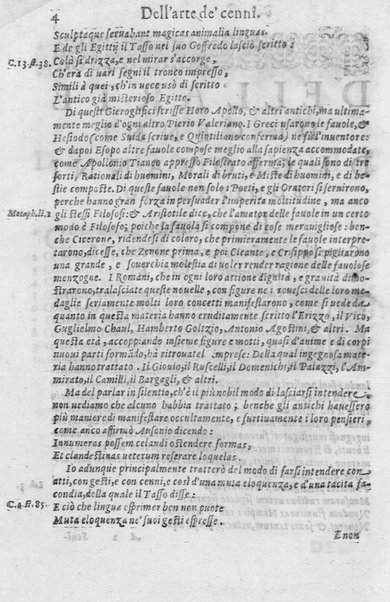 4 Dell'arte de' cenni.
Sculptaque seruabant magicas animalia linguas.
E de gli Egittij il Tasso nel suo Goffredo lasciò scritto:
C.13.st.38. Colà si drizza, e nel mirar s'accorge,
Ch'era di vari segni il tronco impresso,
Simili à quei, ch'in vece usò di scritto
L'antico già misterioso Egitto.
Di questi Gieroglifici scrisse Horo Apollo, & altri antichi, ma ultima-
mente meglio d'ogni altro Pierio Valeriano. I Greci usarono le fauole, &
Hesiodo (come Suida scriue, e Quintiliano conferma) ne fù l'inuentore:
e dapoi Esopo altre fauole compose meglio alla sapienza accommodate,
come Apollonio Tianeo appresso Filostrato afferma; le quali sono di tre
sorti, Rationali di huomini, Morali di bruti, e Miste di huomini, e di be-
stie composte. Di queste fauole non solo i Poeti, e gli Oratori si seruirono,
perche hanno gran forza in persuader l'imperita moltitudine, ma anco
Metaph.li.1 gli stessi Filosofi: & Aristotile dice, che l'amator delle fauole in un certo
modo è Filosofo; poiche la fauola si compone di cose merauigliose: ben-
che Cicerone, ridendosi di coloro, che primieramente le fauole interpre-
tarono, dicesse, che Zenone prima, e poi Cleante, e Crisippo si pigliarono
una grande, e souerchia molestia di voler render ragione delle fauolose
menzogne. I Romani, che in ogni loro attione dignità, e grauità dimo-
strarono, tralasciate queste nouelle, con figure ne i rouesci delle loro me-
daglie seriamente molti loro concetti manifestarono, come si uede da
quanto in questa materia hanno eruditamente scritto l'Erizzo, il Vico,
Guglielmo Chaul, Hamberto Goltzio, Antonio Agostini, & altri. Ma
questa età, accoppiando insieme figure e motti, quasi d'anime e di corpi
nuoui parti formado, hà ritrouate l'Imprese: Della qual ingegnosa mate-
ria hanno trattato. Il Giouio, il Ruscelli, il Domenichi, il Palazzi, l'Am-
mirato, il Camilli, il Bargagli, & altri.
Ma del parlar in silentio, ch'è il più nobil modo di lasciarsi intendere
non uediamo che alcuno habbia trattato; benche gli antichi hauessero
più maniere di manifestare occultamente, e furtiuamente i loro pensieri,
come anco affirmò Ausonio dicendo:
Innumeras possem celandi ostendere formas,
Et clandestinas ueterum reserare loquelas.
Io adunque principalmente tratterò del modo di farsi intendere con
atti, con gesti, e con cenni, e così d'una muta eloquenza, e d'una tacita fa-
condia, della quale il Tasso disse:
C.4.st.85. E ciò che lingua esprimer ben non puote
Muta eloquenza ne' suoi gesti espresse.
E non